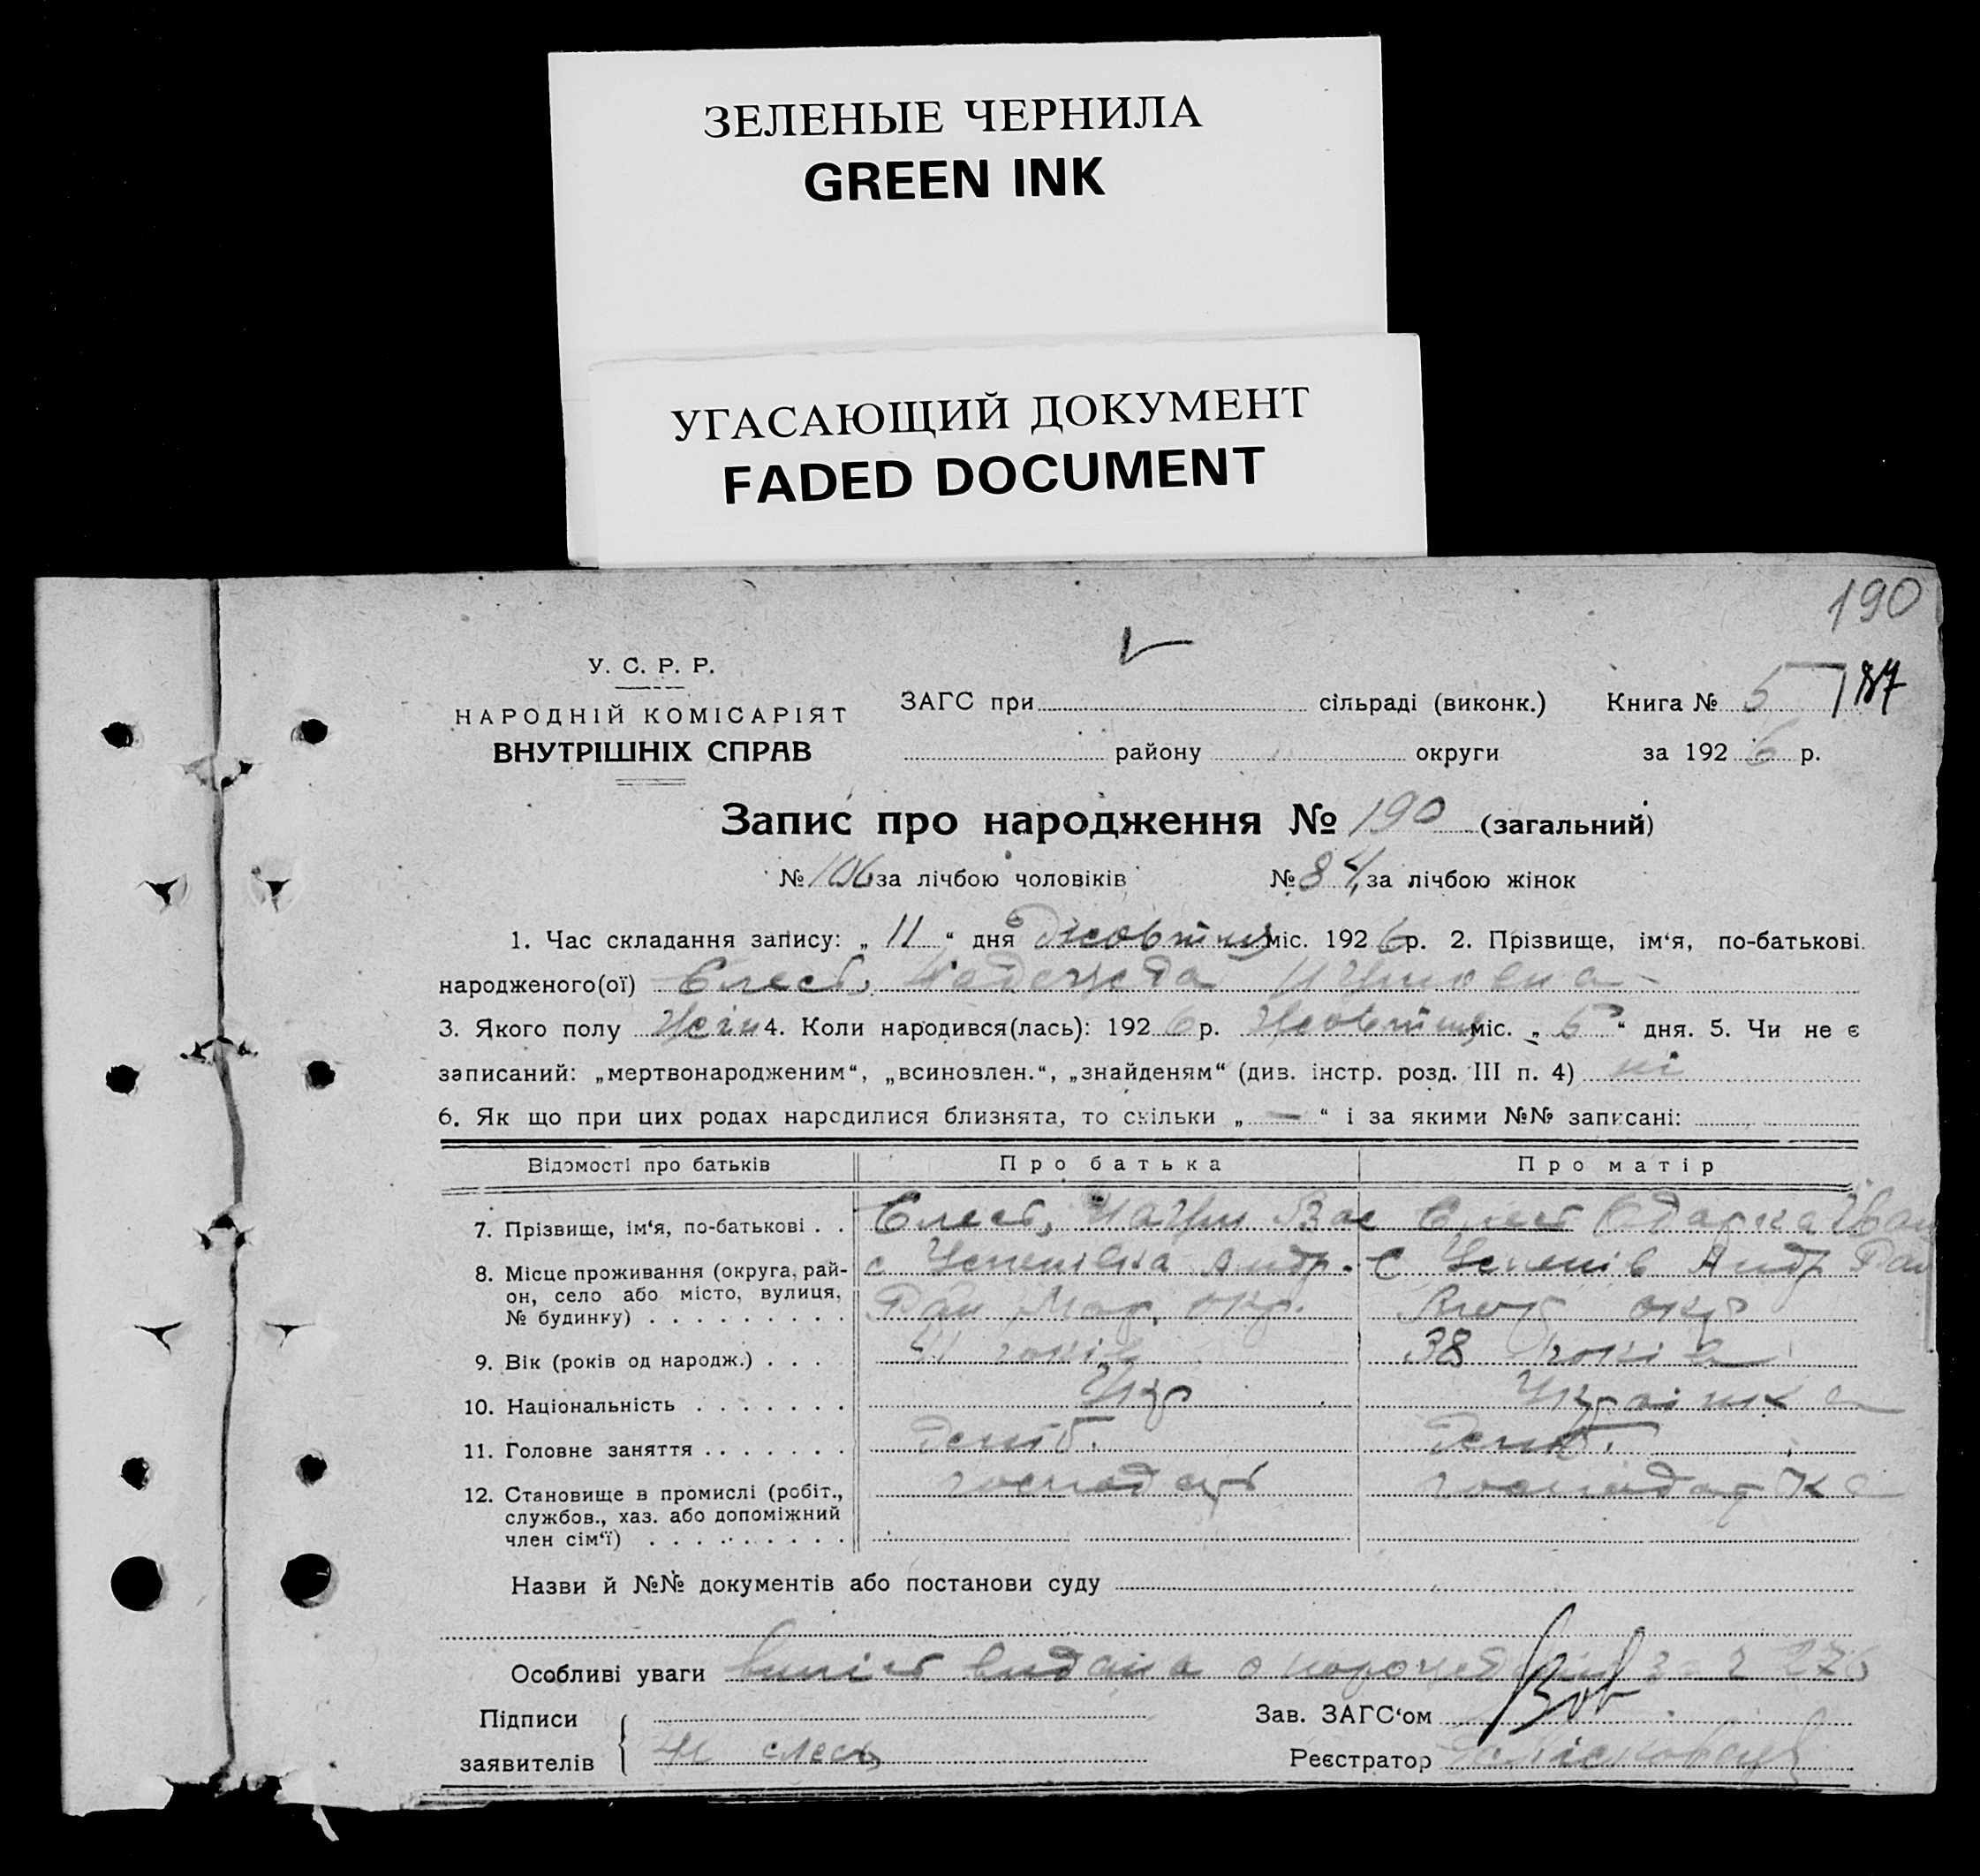 ЗЕЛЕНЫЕ ЧЕРНИЛА
GREEN INK
УГАСАЮЩИЙ ДОКУМЕНТ
FADED DOCUMENT
190
У. С. Р. Р.
НАРОДНІЙ КОМІСАРІЯТ
ВНУТРІШНІХ СПРАВ
ЗАГС при сільраді (виконк.) Книга № 5 187
району округи за 1926 р.
Запис про народження № 190 (загальний)
№ 106 за лічбою чоловіків № 84 за лічбою жінок
1. Час складання запису: „ 11 “ дня міс. 1926 р. 2. Прізвище, ім‘я, по-батькові
народженого(ої) Єлесь, Надежда
3. Якого полу Жін 4. Коли народився(лась): 1926 р. міс. „ 5 “ дня. 5. Чи не є
записаний: „мертвонародженим“, „всиновлен.“, „знайденям“ (див. інстр. розд. III п. 4) ні
6. Як що при цих родах народилися близнята, то скільки „ — “ і за якими №№ записані:
Відомості про батьків Про батька Про матір
7. Прізвище, ім‘я, по-батькові . . Єлесь, Вас Єлесь Одарка Іван
8. Місце проживання (округа, рай- с Успенівка Андр. С Успенів Андр Рай
он, село або місто, вулиця, Рай Мар. окр. окр
№ будинку) . . . . . . . . .
9. Вік (років од народж.) . . . 41 років 38 років
10. Національність . . . . . . . Укр Українка
11. Головне заняття . . . . . . .
12. Становище в промислі (робіт., господарь господарка
службов., хаз. або допоміжний
член сім‘ї) . . . . . . . . .
Назви й №№ документів або постанови суду
Особливі уваги випись видана о
Підписи Зав. ЗАГС‘ом
заявителів Реєстратор